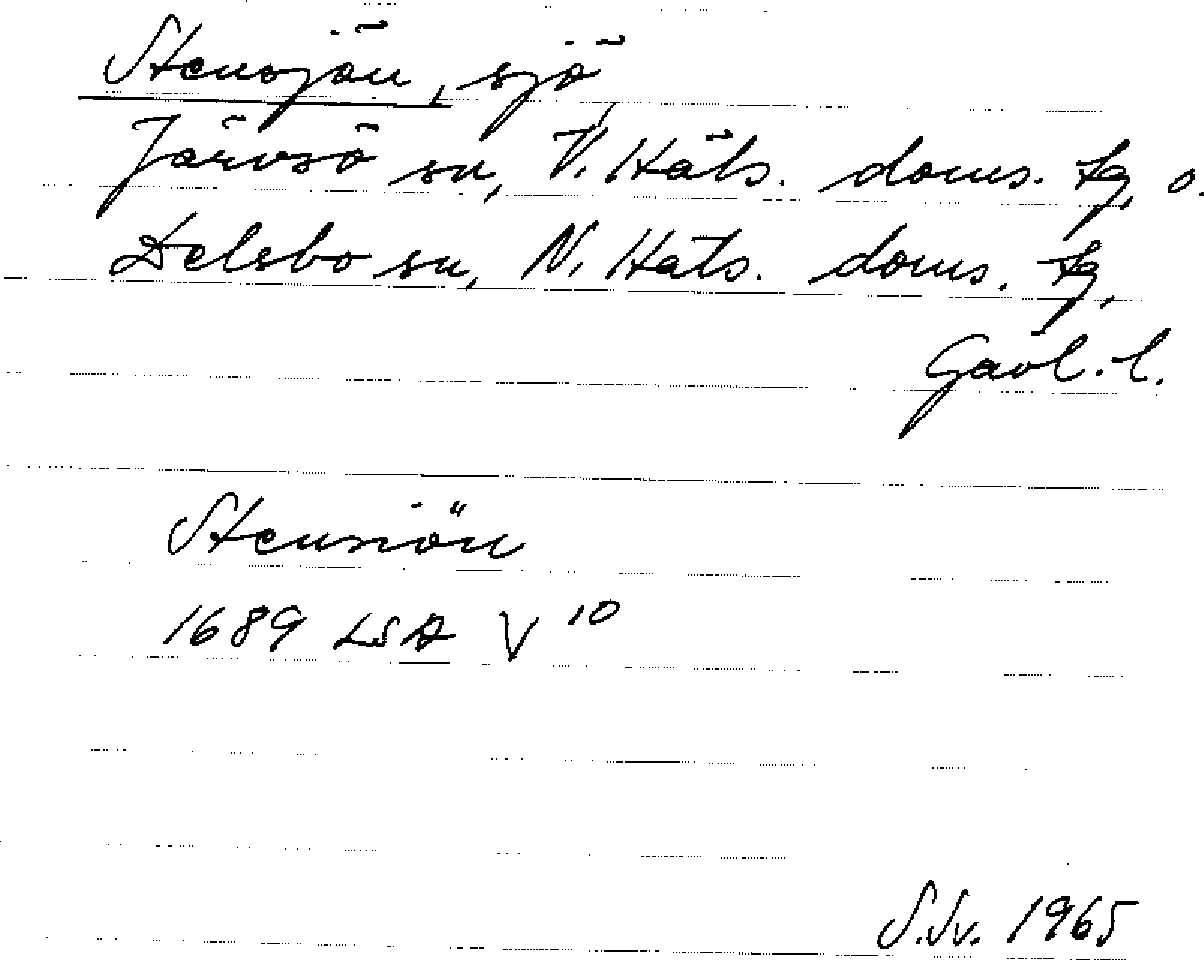 Stensjön, sjö
Järvsö sn, V. Häls. doms. tg, o.
Delsbo sn, N. Häls. doms. tg,
Gävl. l.
Stensiön
1689 LSA V 10
S.Sv. 1965